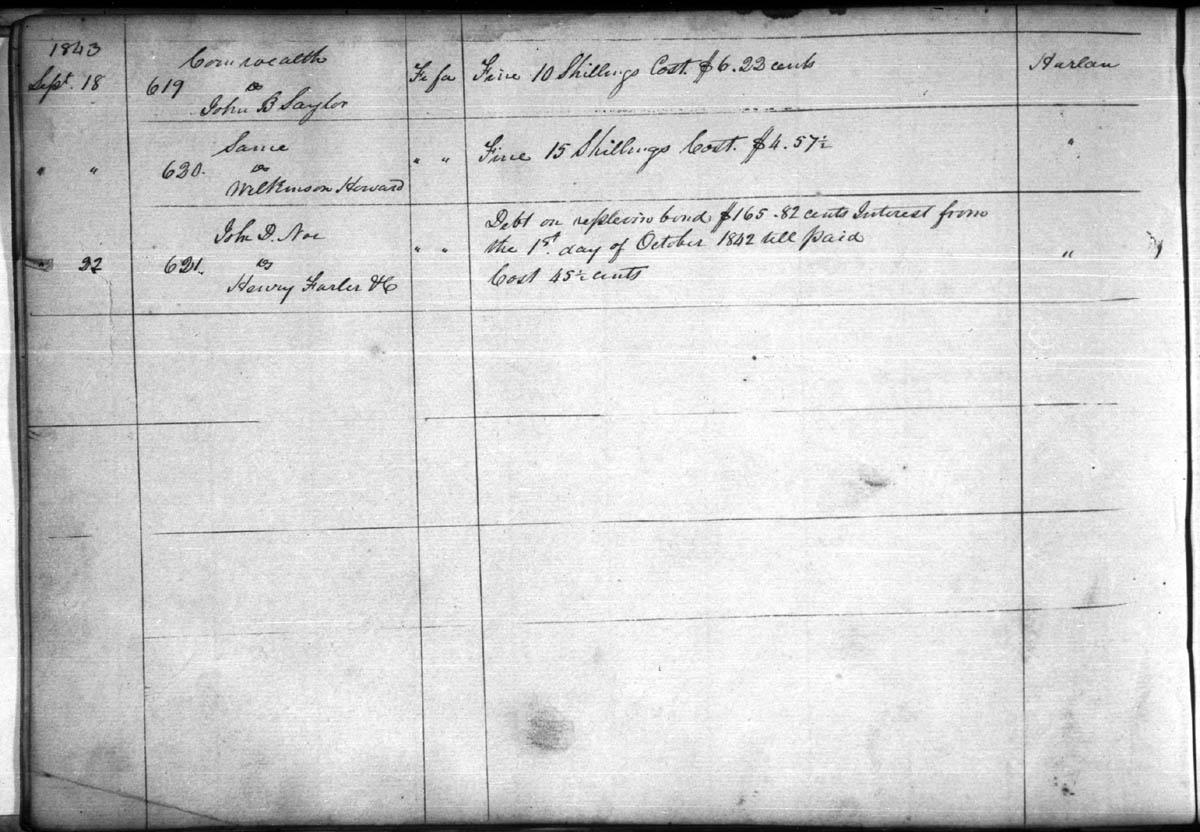 1843
Sept. 18 619 Comwealth vs John B Saylor Fi fa Fine 10 Shillings Cost. $6.23 cents Harlan
" " 620. Same vs Wilkinson Howard " " Fine 15 Shillings Cost. $4.57½ "
" 22 621. John D. Noe vs Henry Farler &C " " Debt on replevin bond $165.82 cents Interest from
the 1st. day of October 1842 till paid "
Cost 45½ cents